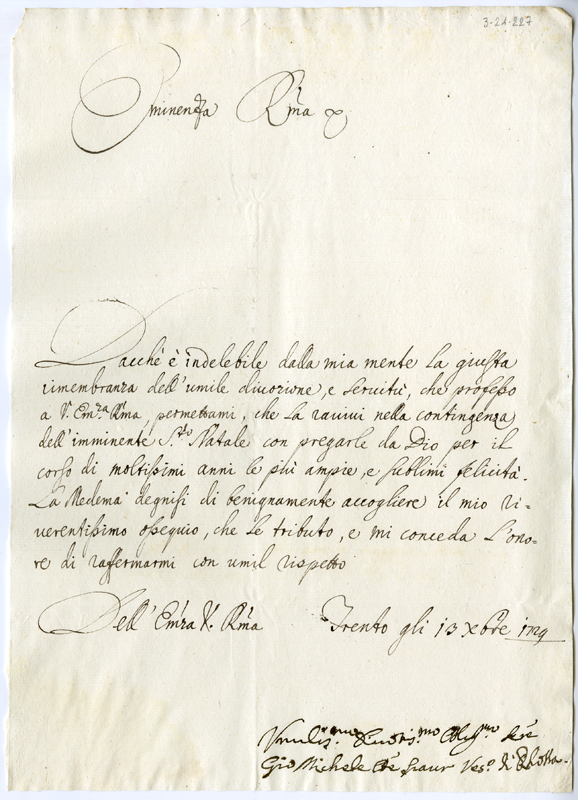 3-21-227
Eminenza Rma
Dacchè è indelebile dalla mia mente la giusta
rimembranza dell'umile divozione, e servitù, che professo
a V. Emza Rma permettami, che la ravivi nella contingenza
dell'imminente S.to Natale con pregarle da Dio per il
corso di moltissimi anni le più ampie, e sublimi felicità.
La Medema degnisi di benignamente accogliere il mio ri=
verentissimo ossequio, che le tributo, e mi conceda l'ono=
re di raffermarmi con umil rispetto
Dell' Emza V. Rma Trento gli 13 Xbre 1729
Umilis.mo Divotis.mo Oblig.mo
Gio Michele Ves.o di